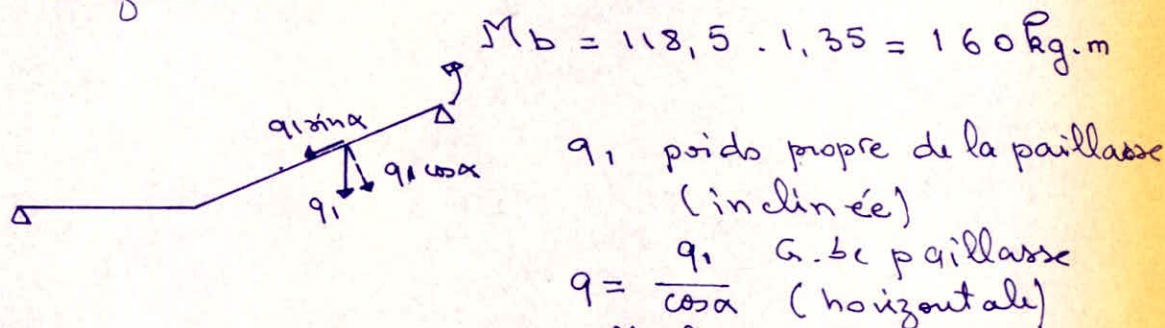 Mb = 118,5 . 1,35 = 160 kg.m
q1 sinα
q1 cosα
q1
q1 poids propre de la paillasse
(inclinée)
q = q1 / cosα G. bc paillasse
(horizontale)